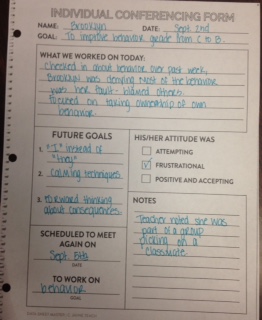 INDIVIDUAL CONFERENCING FORM
NAME: Brooklyn DATE: Sept. 2nd
GOAL: To improve behavior grade from C to B.
WHAT WE WORKED ON TODAY:
Checked in about behavior over past week.
Brooklyn was denying most of the behavior
was her fault - blamed others.
Focused on taking ownership of own
behavior.
FUTURE GOALS
1. "I" instead of
"they"
2. Calming techniques
3. Forward thinking
about consequences
HIS/HER ATTITUDE WAS
ATTEMPTING
FRUSTRATIONAL
POSITIVE AND ACCEPTING
SCHEDULED TO MEET
AGAIN ON
Sept. 8th
DATE
TO WORK ON
behavior
GOAL
NOTES
Teacher noted she was
part of a group
picking on a
classmate.